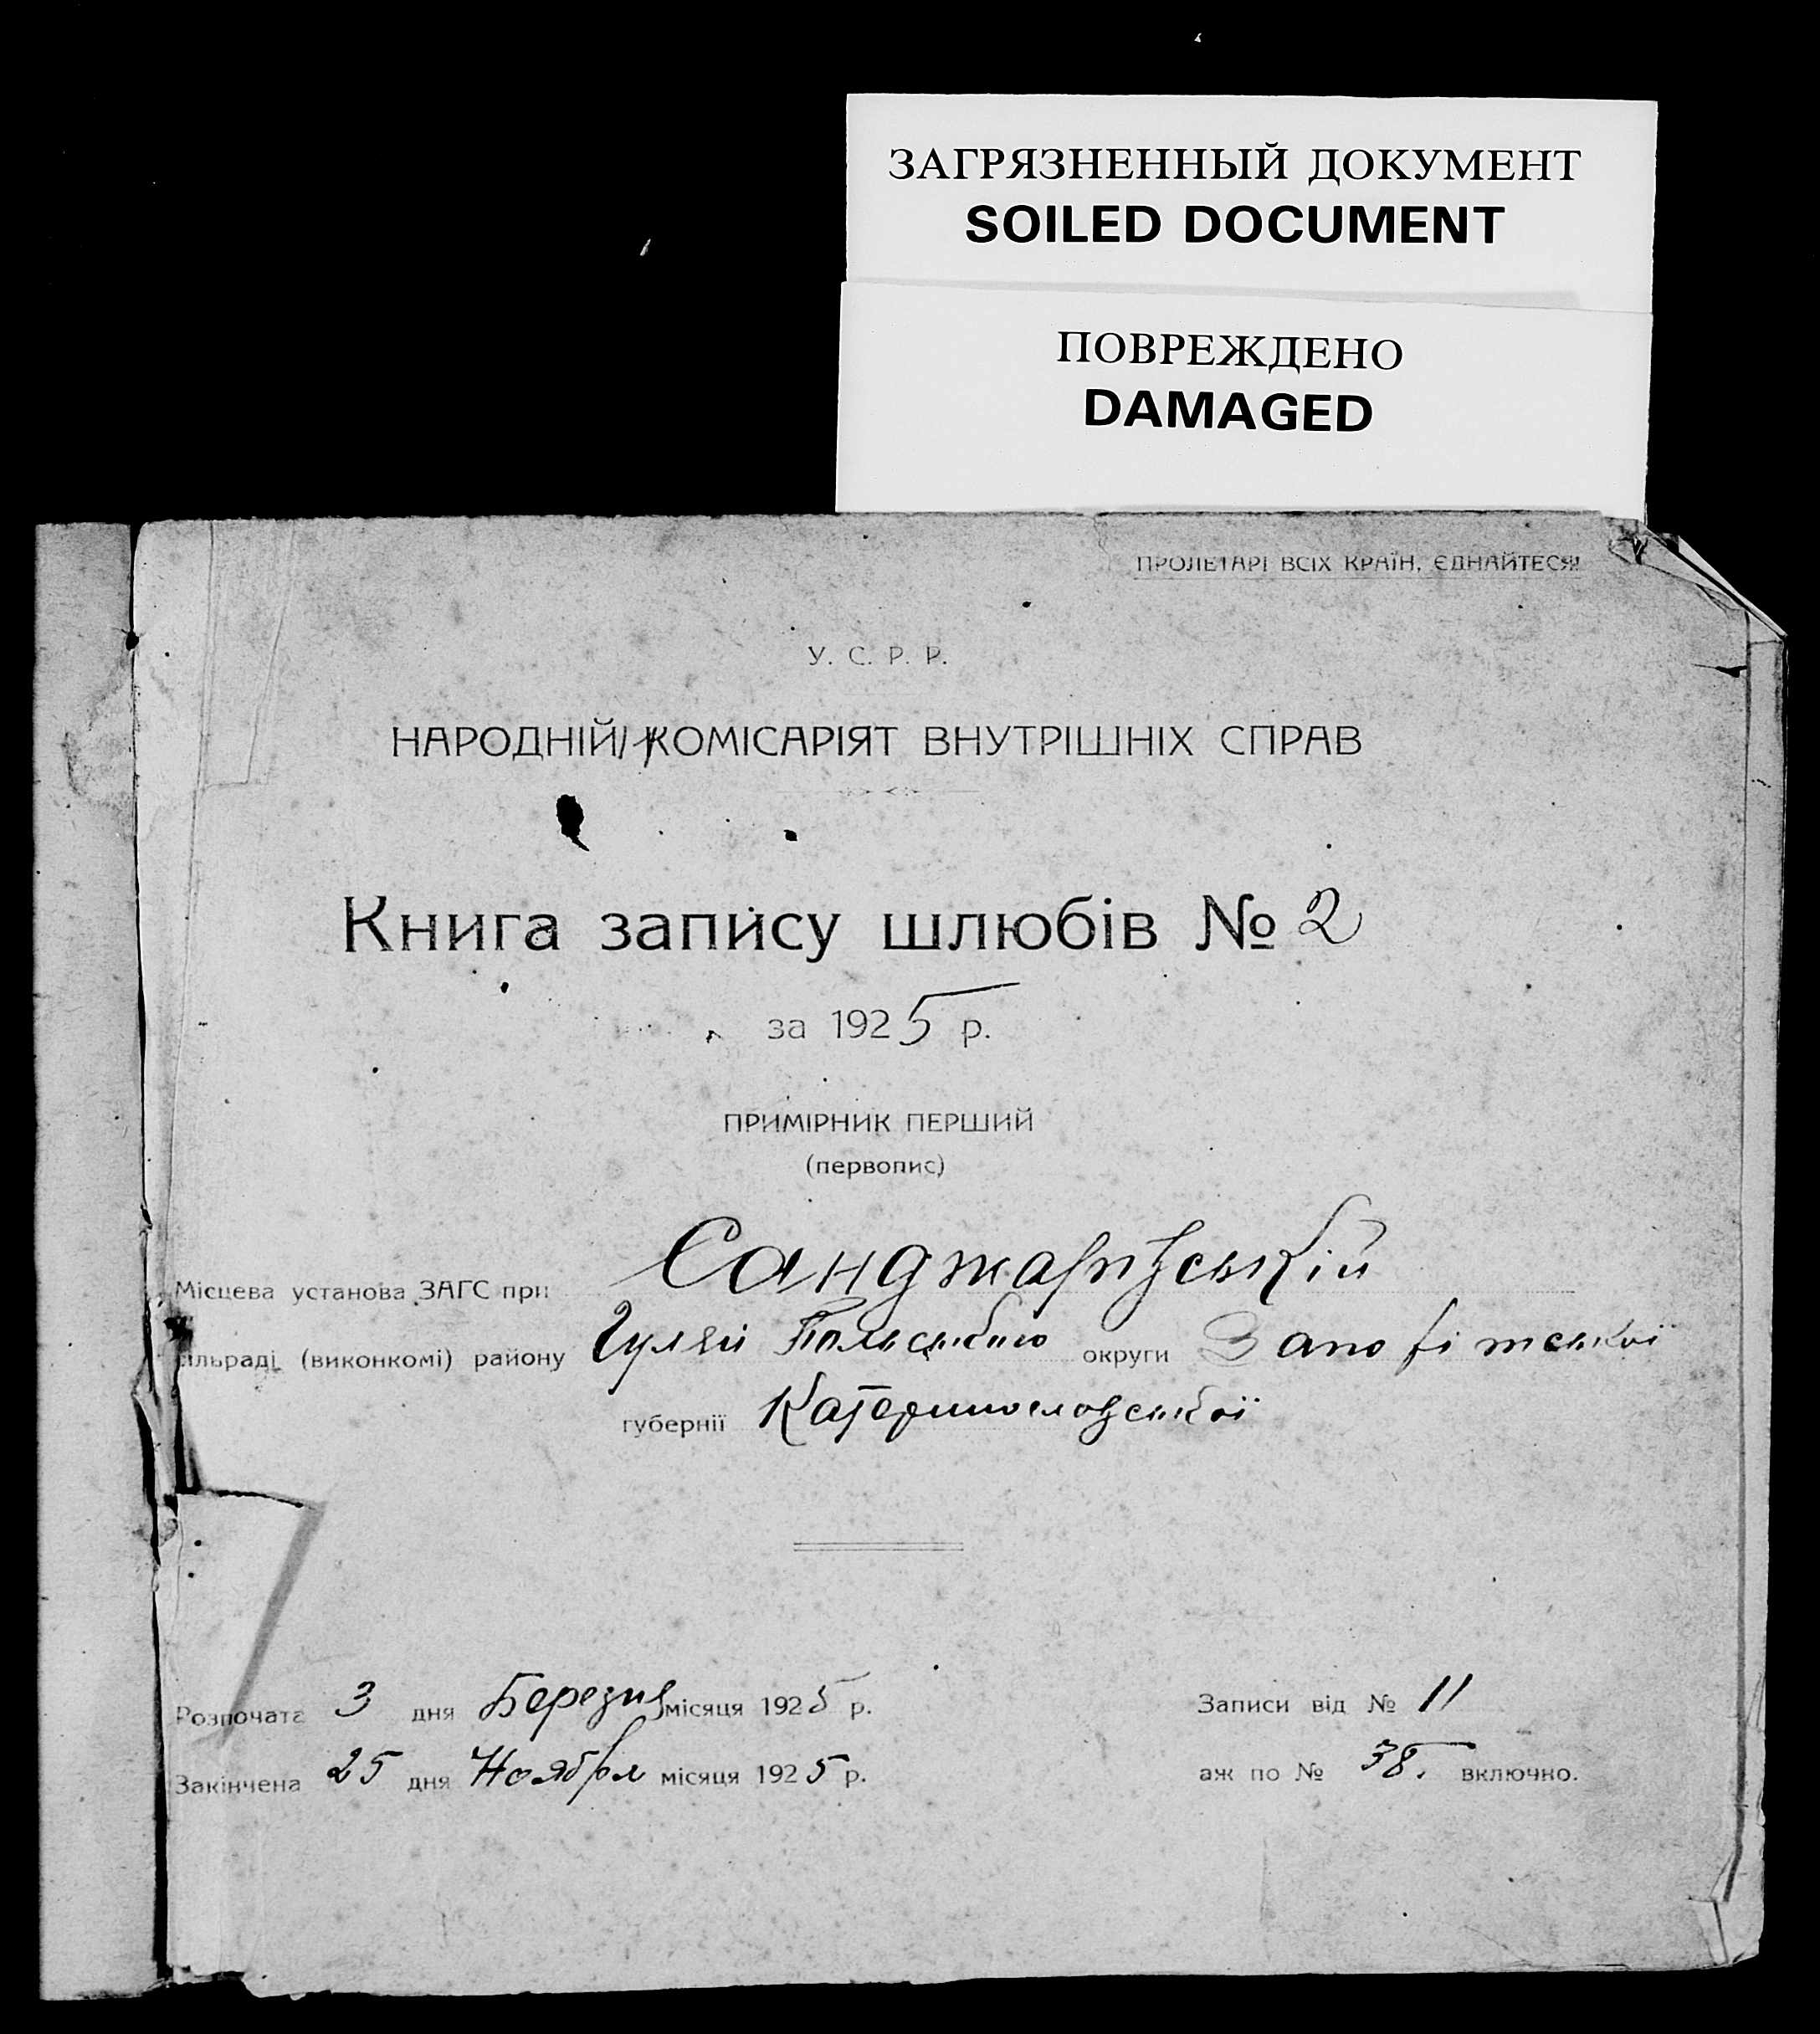 ЗАГРЯЗНЕННЫЙ ДОКУМЕНТ
SOILED DOCUMENT
ПОВРЕЖДЕНО
DAMAGED
ПРОЛЕТАРІ ВСІХ КРАЇН, ЄДНАЙТЕСЯ!
У. С. Р. Р.
НАРОДНІЙ КОМІСАРІЯТ ВНУТРІШНІХ СПРАВ
Книга запису шлюбів № 2
за 1925 р.
ПРИМІРНИК ПЕРШИЙ
(первопис)
Місцева установа ЗАГС при Санджарівській
сільраді (виконкомі) району Гуляй Польського округи Запоріжської
губернії Катеринославської
Розпочата 3 дня Березня місяця 1925 р. Записи від № 11
Закінчена 25 дня Ноября місяця 1925 р. аж по № 38. включно.